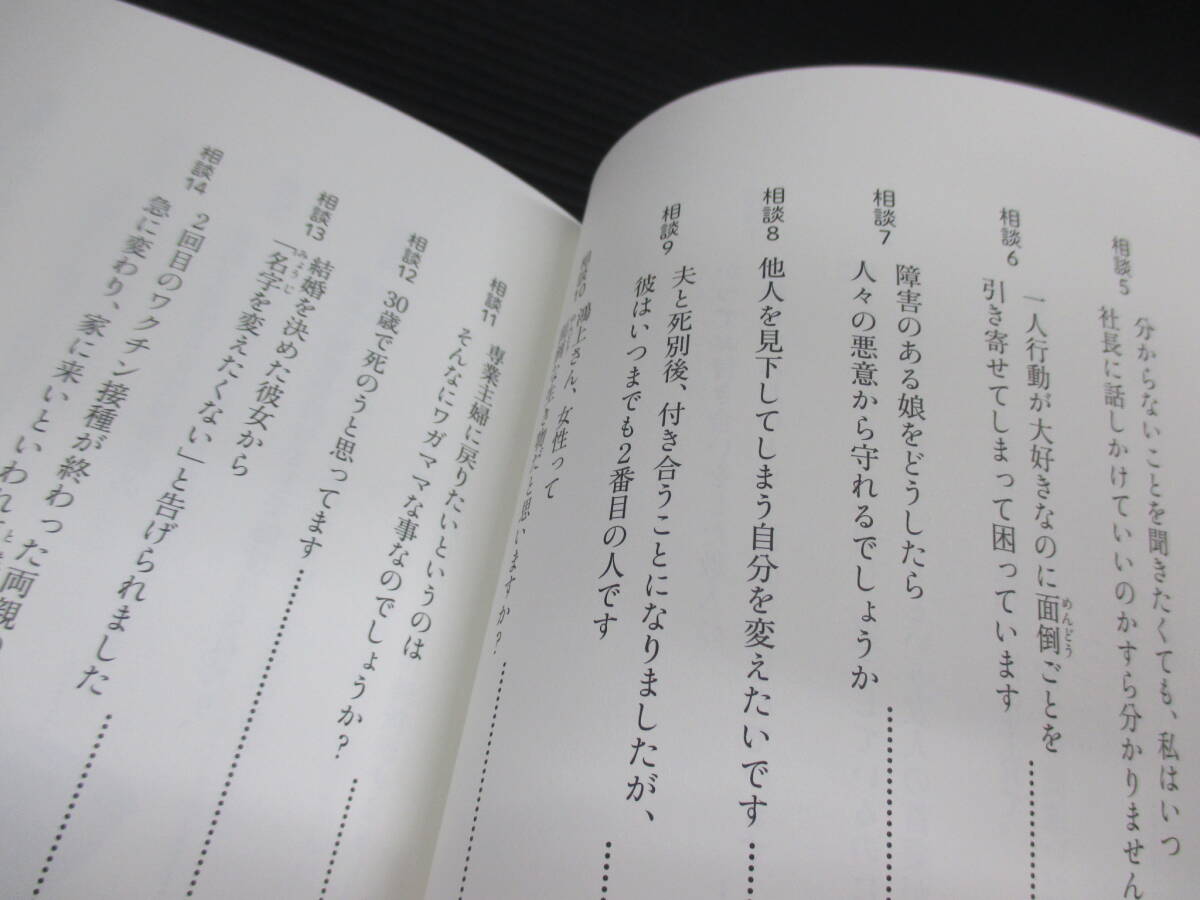 相談5
分からないことを聞きたくても、私はいつ
社長に話しかけていいのかすら分かりません
相談6
一人行動が大好きなのに面倒ごとを
めんどう
引き寄せてしまって困っています
相談7
障害のある娘をどうしたら
人々の悪意から守れるでしょうか
相談8
他人を見下してしまう自分を変えたいです
相談9
夫と死別後、付き合うことになりましたが、
彼はいつまでも2番目の人です
相談10
鴻上さん、女性って
だと思いますか?
相談11
専業主婦に戻りたいというのは
そんなにワガママな事なのでしょうか?
相談12
30歳で死のうと思ってます
相談13
結婚を決めた彼女から
「名字を変えたくない」と告げられました
みょうじ
相談14
2回目のワクチン接種が終わった両親の
急に変わり、家に来いといわれ